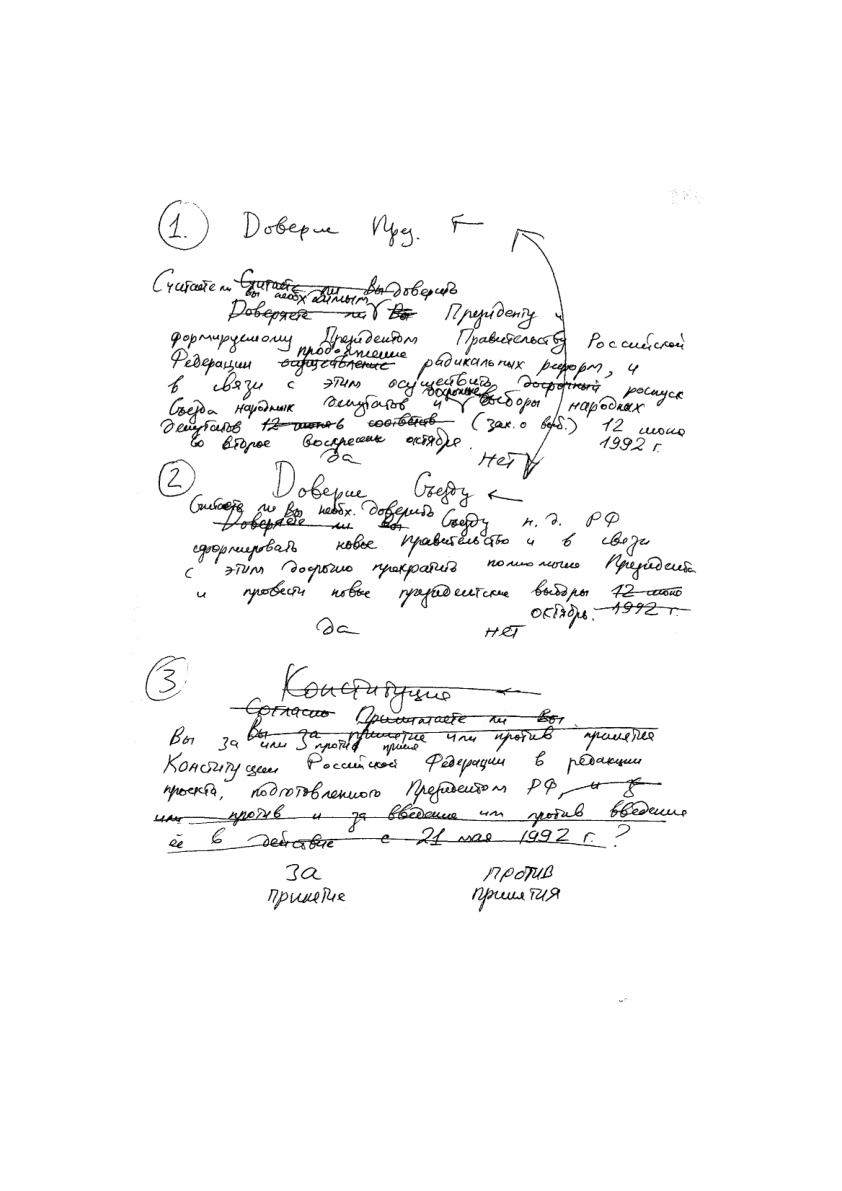 1. Доверие През. ←
Считаете ли Считаете ли Вы доверить
вы необходимым
Доверяете ли Вы Президенту и
формируемому Президентом Правительству Российской
продолжение
Федерации осуществление радикальных реформ, и
в связи с этим осуществить досрочный роспуск
досрочные
Съезда народных депутатов и выборы народных
депутатов 12 июня в соответств (зак. о выб.) 12 июня
во второе воскресенье октября. 1992 г.
да нет
2 Доверие Съезду ←
Считаете ли Вы необх. доверить
Доверяете ли Вы Съезду н. д. РФ
сформировать новое Правительство и в связи
с этим досрочно прекратить полномочия Президента
и провести новые президентские выборы 12 июня
октябрь. 1992 г.
да нет
3 Конституция ←
Согласны Принимаете ли Вы
Вы за принятие или против
Вы за или против принятие
Конституции Российской Федерации в редакции
проекта, подготовленного Президентом РФ, и в
или против и за введение или против введение
её в действие с 21 мая 1992 г.?
За против
принятие принятия